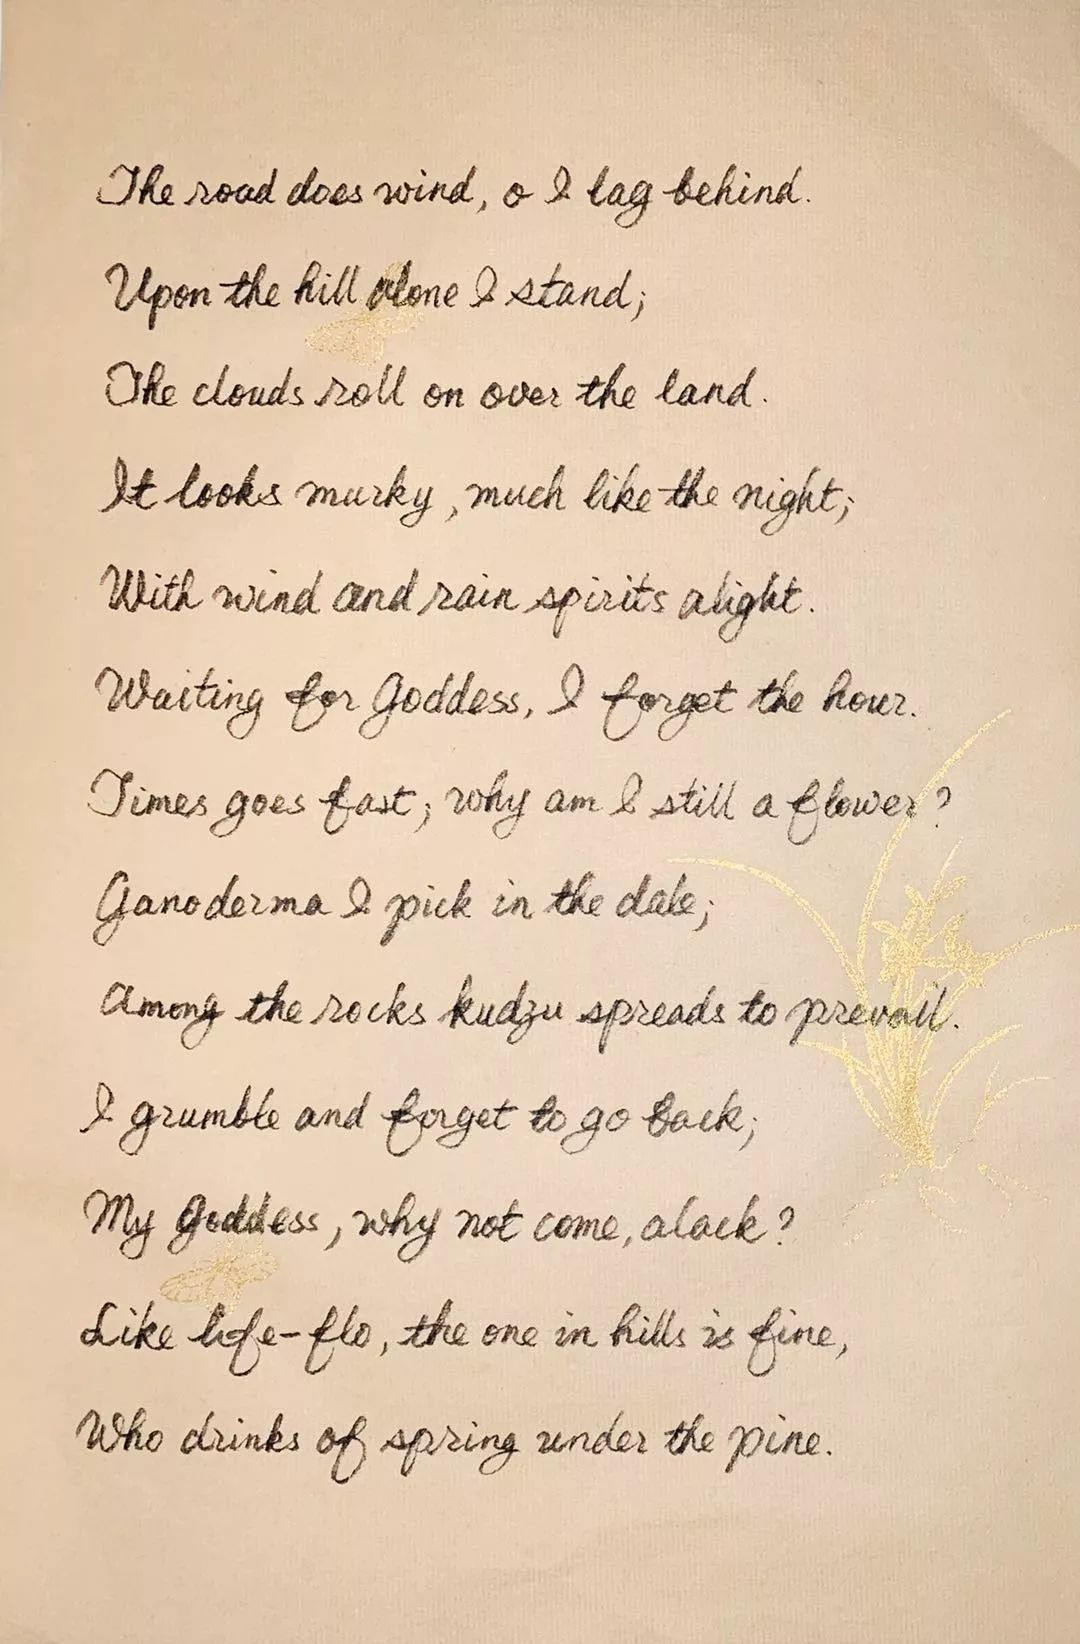 The road does wind, o I lag behind.
Upon the hill alone I stand;
The clouds roll on over the land.
It looks murky, much like the night;
With wind and rain spirits alight.
Waiting for Goddess, I forget the hour.
Times goes fast; why am I still a flower?
Ganoderma I pick in the dale;
Among the rocks kudzu spreads to prevail.
I grumble and forget to go back;
My goddess, why not come, alack?
Like life-flo, the one in hills is fine,
Who drinks of spring under the pine.